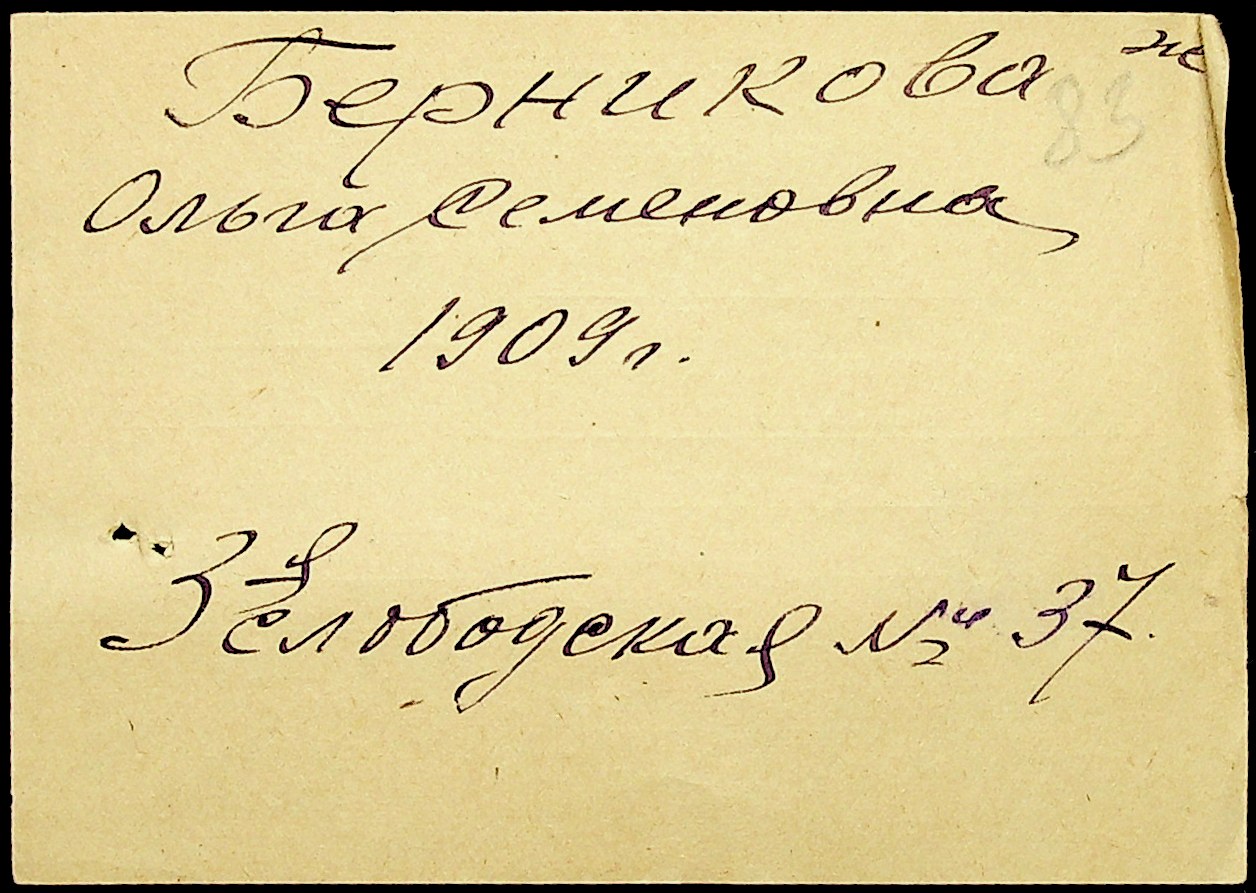 Берникова же
83
Ольга Семеновна
1909 г.
3я слободская № 37.